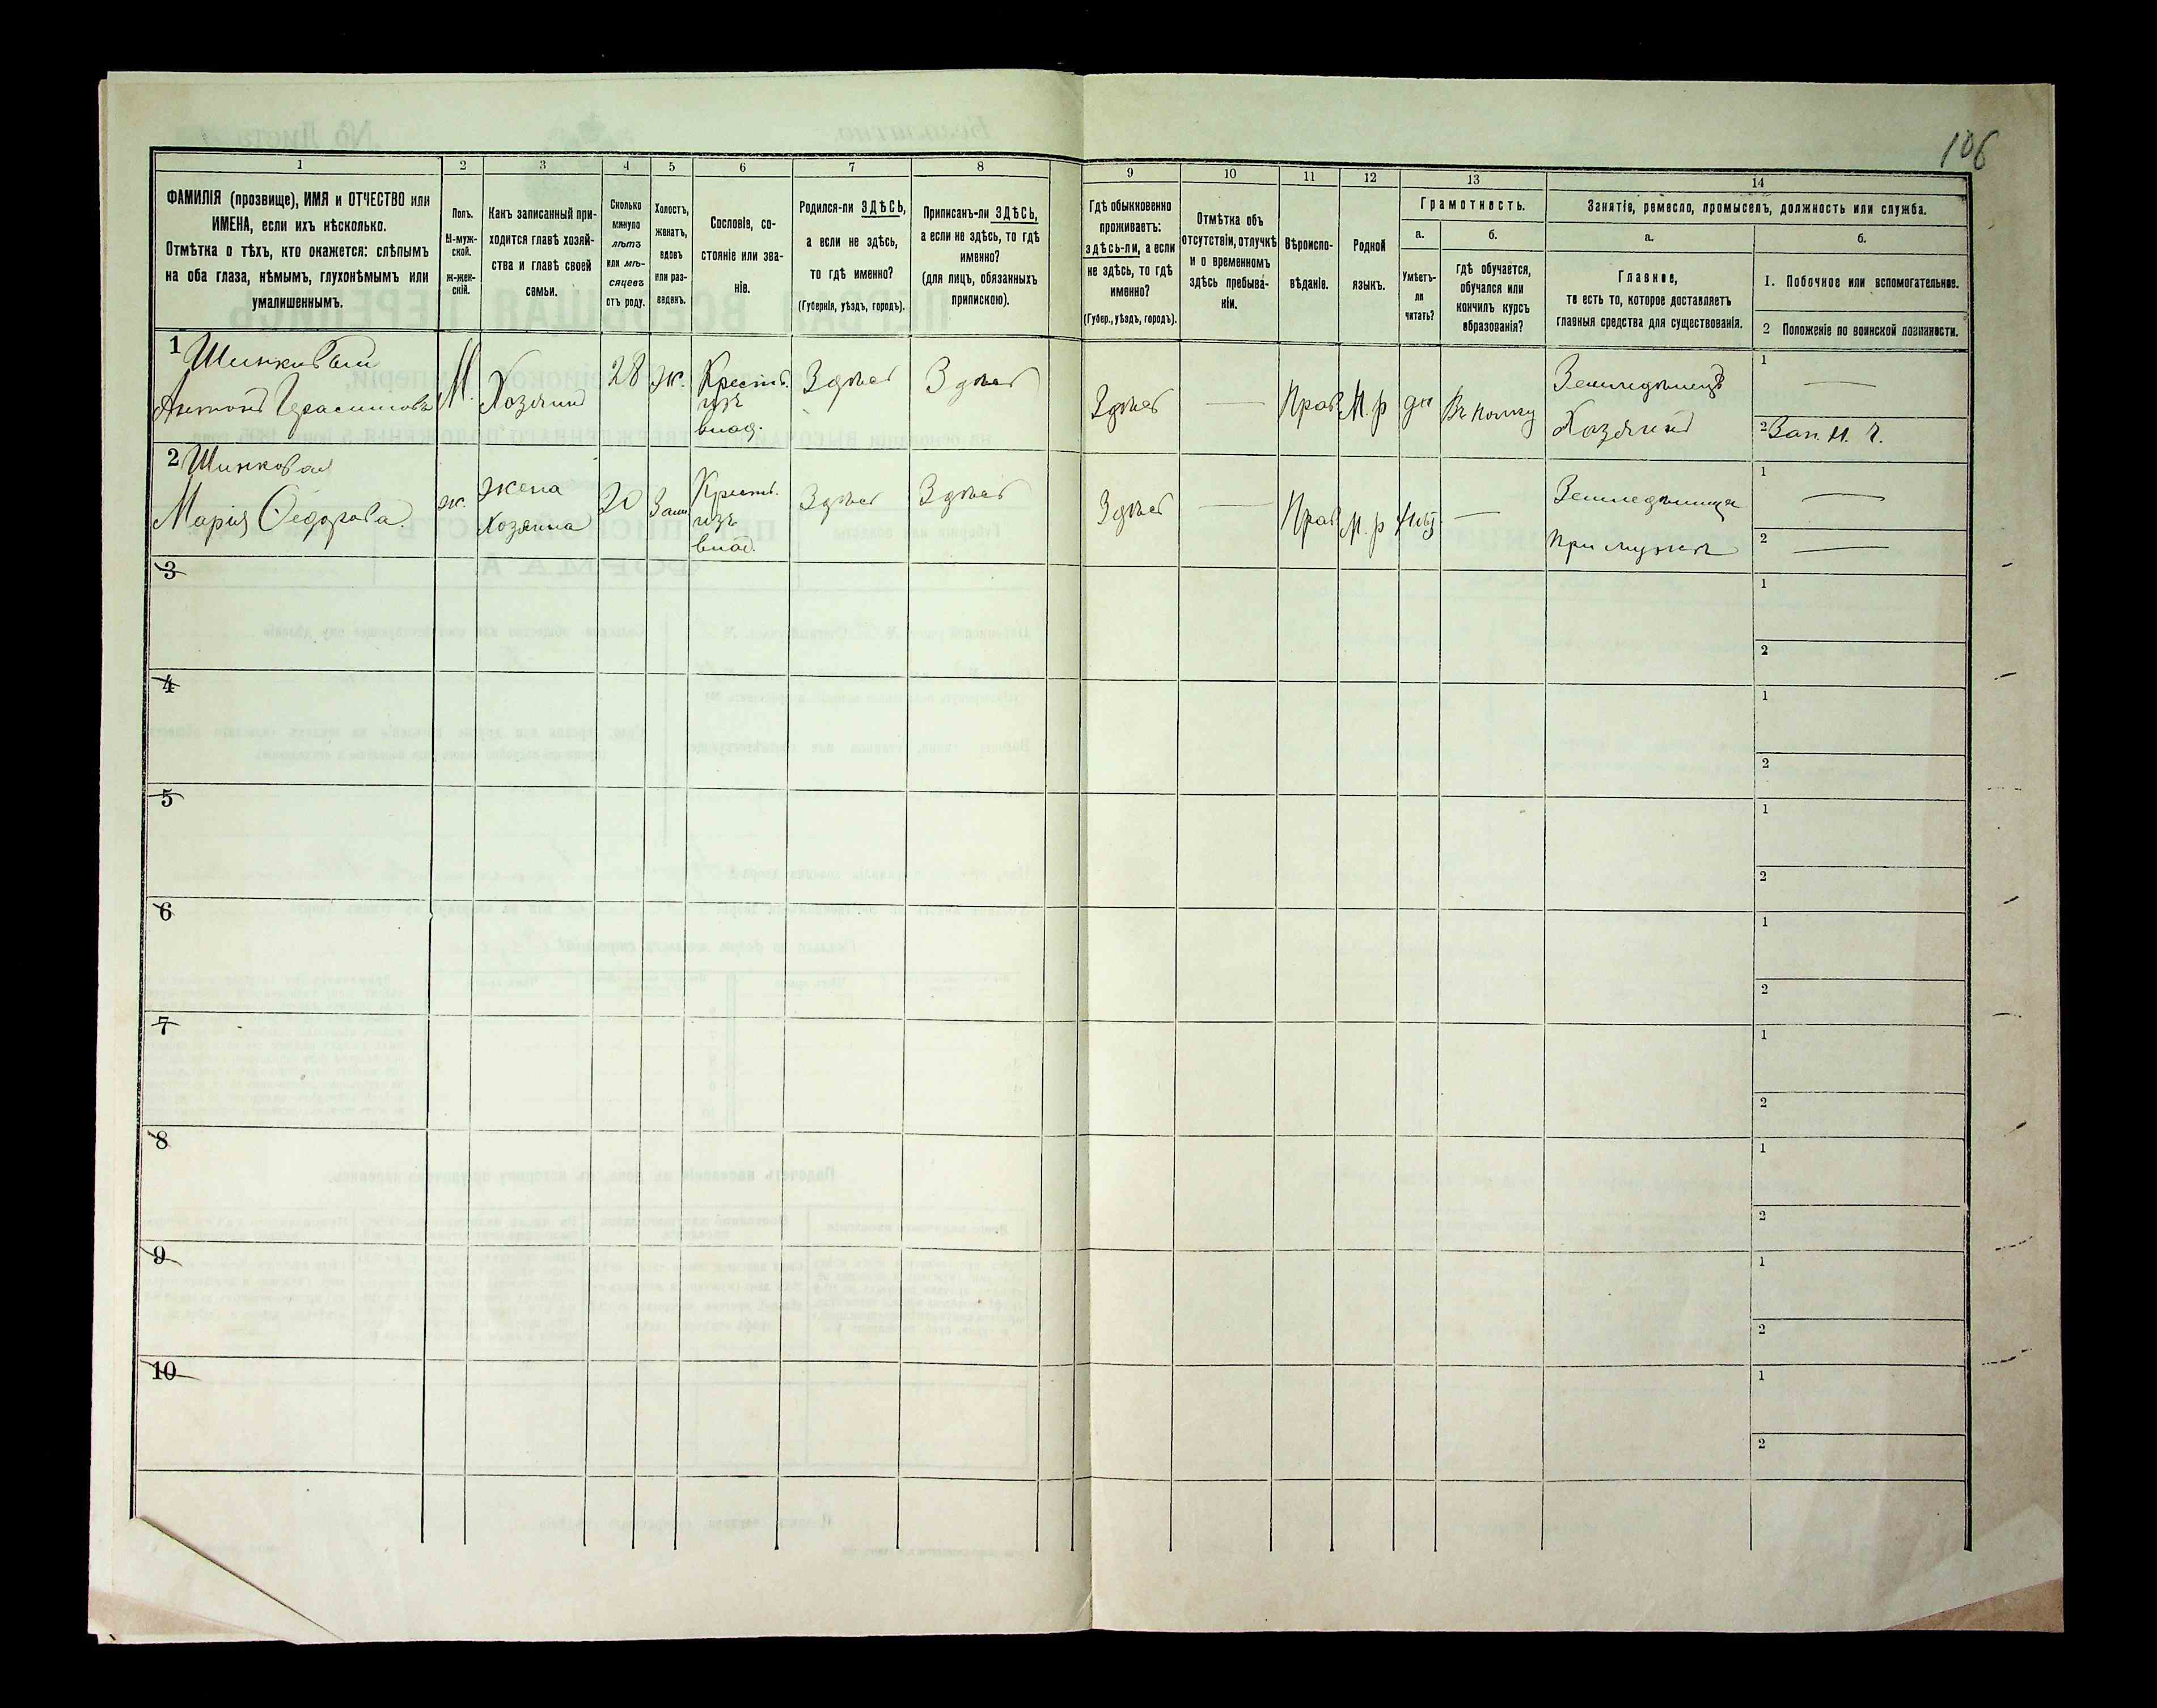 106
1
2
3
4
5
6
7
8
9
10
11
12
13
14
ФАМИЛІЯ (прозвище), ИМЯ и ОТЧЕСТВО или
ИМЕНА, если ихъ нѣсколько.
Отмѣтка о тѣхъ, кто окажется: слѣпымъ
на оба глаза, нѣмымъ, глухонѣмымъ или
умалишеннымъ.
Полъ.
М-муж-
ской.
ж-жен-
скій.
Какъ записанный при-
ходится главѣ хозяй-
ства и главѣ своей
семьи.
Сколько
минуло
лѣтъ
или мѣ-
сяцевъ
отъ роду.
Холостъ,
женатъ,
вдовъ
или раз-
веденъ.
Сословіе, со-
стояніе или зва-
ніе.
Родился-ли ЗДѢСЬ,
а если не здѣсь,
то гдѣ именно?
(Губернія, уѣздъ, городъ).
Приписанъ-ли ЗДѢСЬ,
а если не здѣсь, то гдѣ
именно?
(для лицъ, обязанныхъ
припискою).
Гдѣ обыкновенно
проживаетъ:
здѣсь-ли, а если
не здѣсь, то гдѣ
именно?
(Губер., уѣздъ, городъ).
Отмѣтка объ
отсутствіи, отлучкѣ
и о временномъ
здѣсь пребыва-
ніи.
Вѣроиспо-
вѣданіе.
Родной
языкъ.
Грамотность.
а.
Умѣетъ-
ли
читать?
б.
гдѣ обучается,
обучался или
кончилъ курсъ
образованія?
Занятіе, ремесло, промыселъ, должность или служба.
а.
Главное,
то есть то, которое доставляетъ
главныя средства для существованія.
б.
1. Побочное или вспомогательное.
2 Положеніе по воинской повинности.
1 Шинковый
Антонъ Герасимовъ
М.
Хозяинъ
28
ж.
Крестъ.
изъ
влад.
Здѣсь
Здѣсь
Здѣсь
—
Прав.
М. р
да
Въ полку
Земледѣлецъ
Хозяинъ
1 —
2 Зап. н. ч.
2 Шинковая
Марія Ѳедорова.
ж.
жена
хозяина
20
Зам.
Крест.
изъ
влад.
Здѣсь
Здѣсь
Здѣсь
—
Прав
М. р
Нѣт
—
Земледѣлица
при мужѣ
1 —
2 —
3
1
2
4
1
2
5
1
2
6
1
2
7
1
2
8
1
2
9
1
2
10
1
2